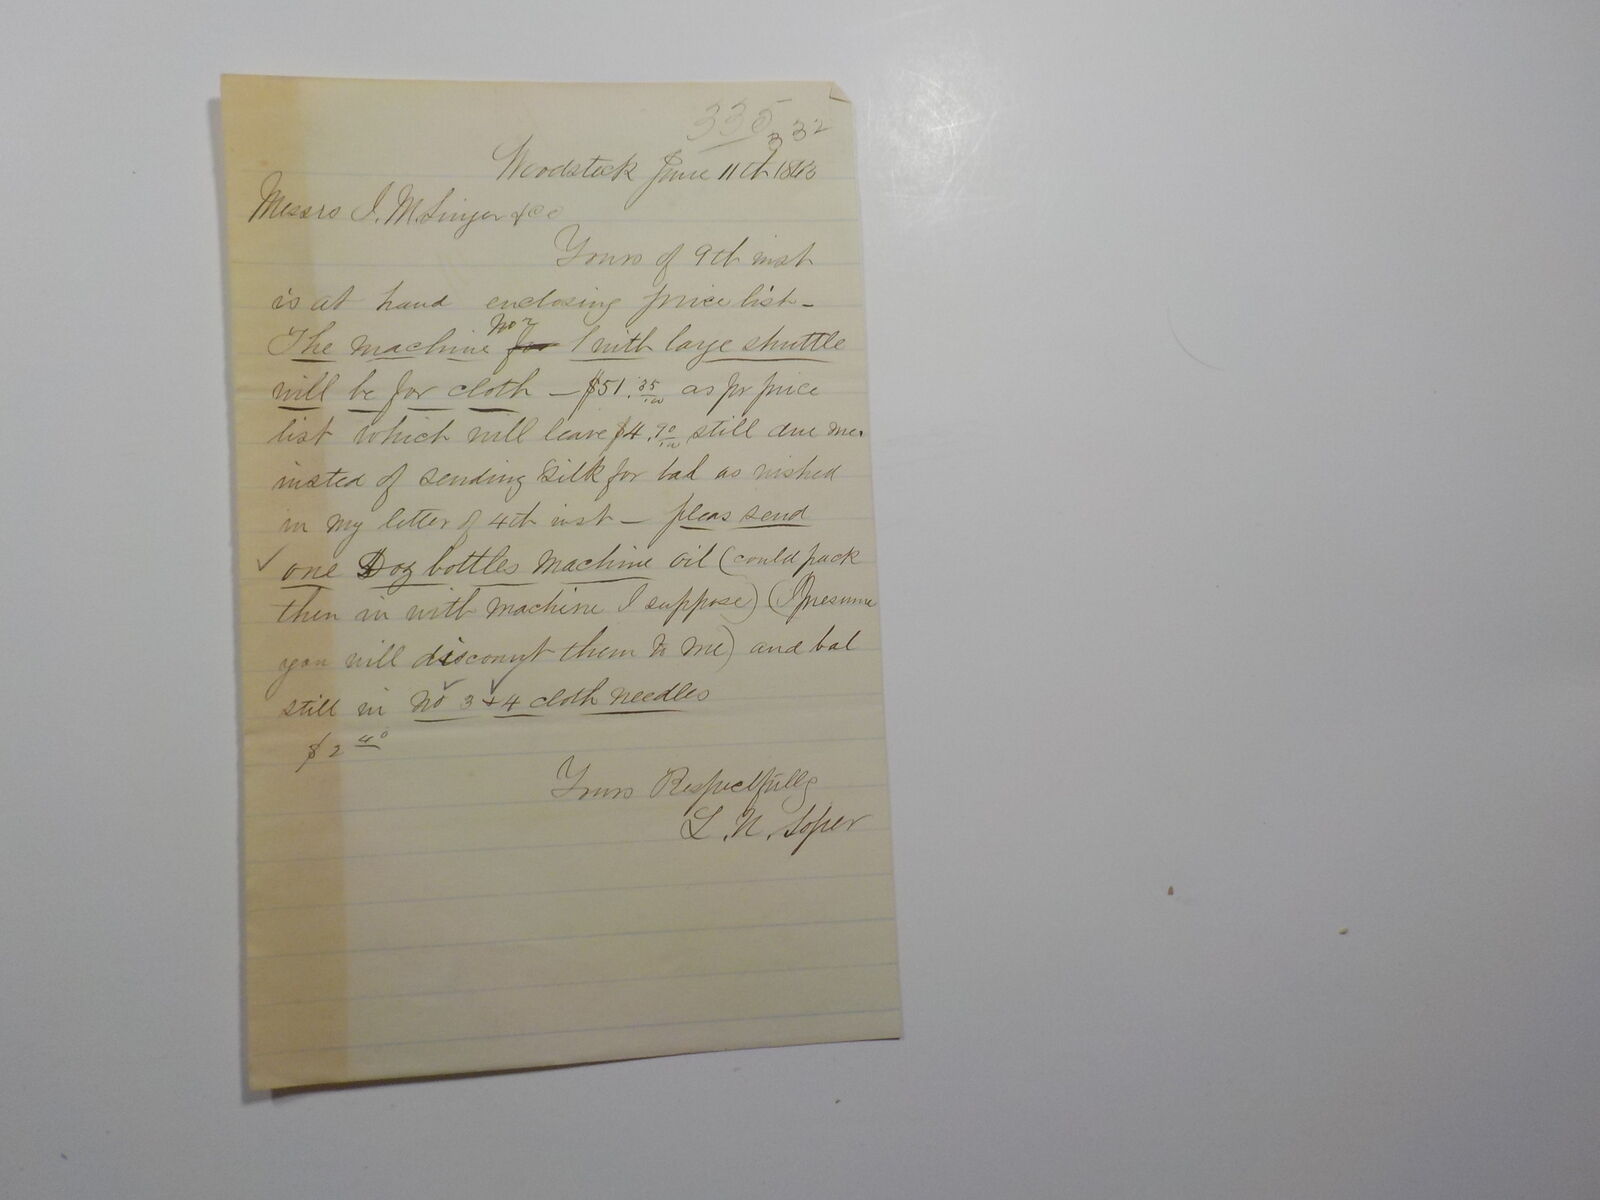 335 332
Woodstock June 11th 1863
Messrs I. M. Singer & Co
Yours of 9th inst
is at hand enclosing price list –
No
The machine for 1 with large shuttle
will be for cloth – $51.35/100 as pr price
list which will leave $4.90/100 still due me.
insted of sending silk for bal as wished
in my letter of 4th inst – pleas send
✓ one Doz bottles machine oil (could pack
then in with machine I suppose) (I presume
you will discount them to me) and bal
still in No 3 + 4 cloth needles
$2 40
Yours Respectfully
L. N. Soper